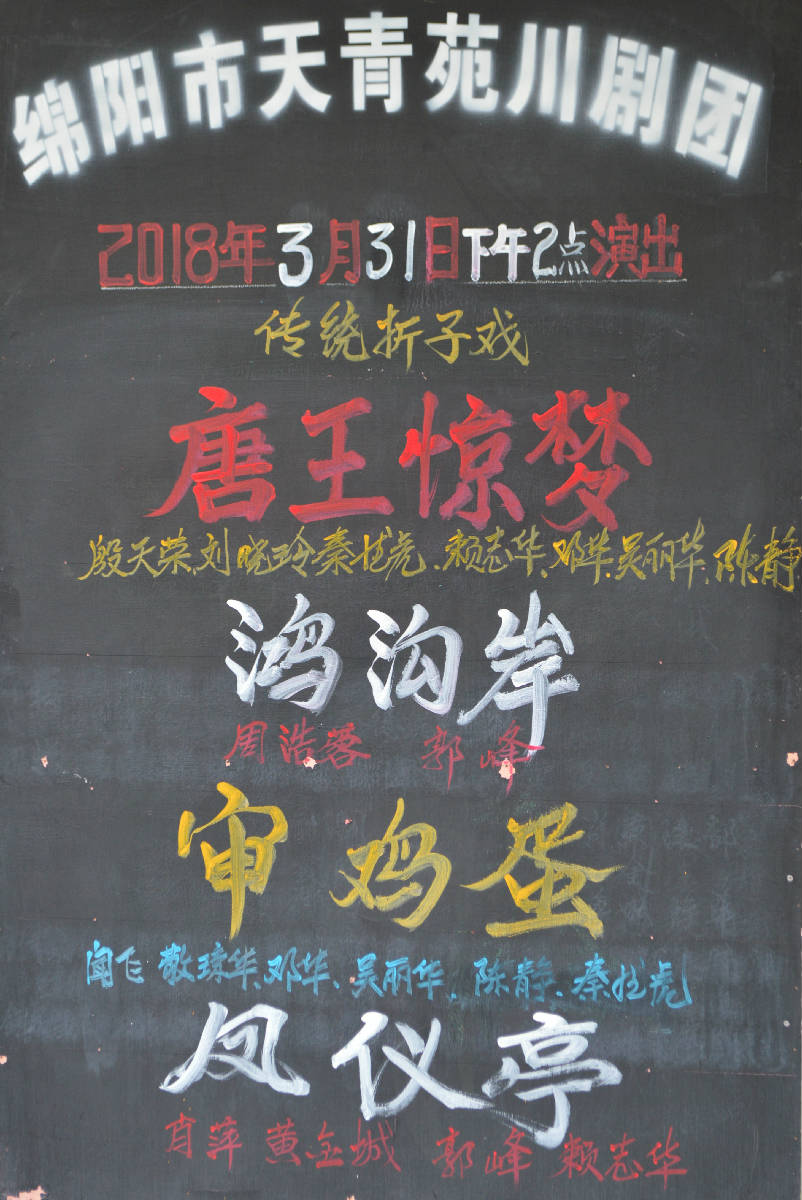 绵阳市天青苑川剧团
2018年3月31日下午2点演出
传统折子戏
唐王惊梦
殷天荣、刘晓玲、秦扰虎、赖志华、邓华、吴丽华、陈静
鸿沟岸
周浩蓉 郭峰
审鸡蛋
闻飞 敬琼华、邓华、吴丽华、陈静、秦扰虎
凤仪亭
肖萍 黄金城 郭峰 赖志华